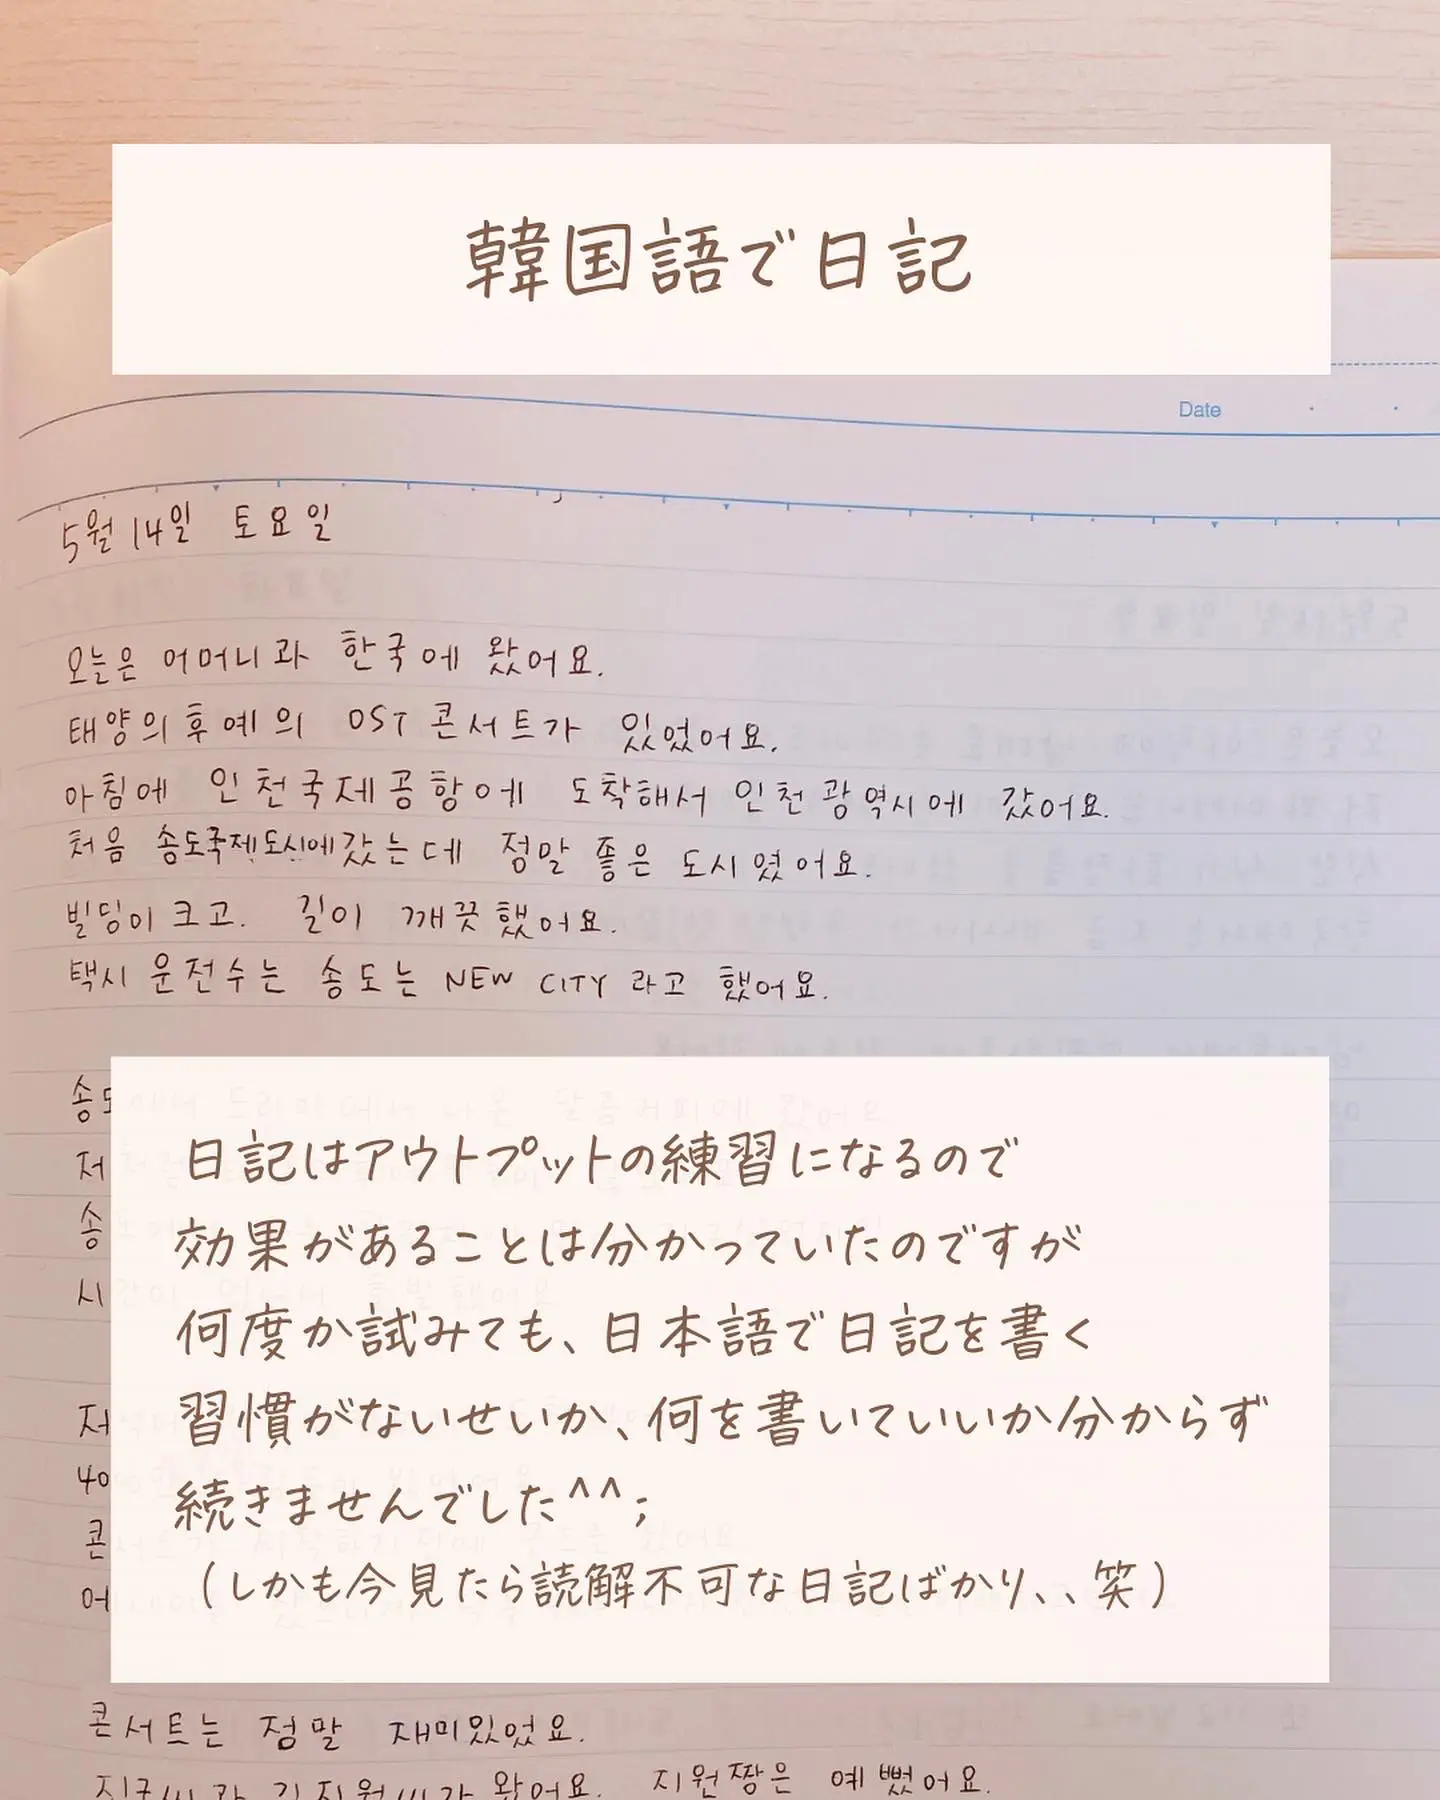 韓国語で日記
Date
5월 14일 토요일
오늘은 어머니과 한국에 왔어요.
태양의후예의 OST 콘서트가 있었어요.
아침에 인천국제공항에 도착해서 인천광역시에 갔어요.
처음 송도국제도시에갔는데 정말 좋은 도시였어요.
빌딩이 크고. 길이 깨끗했어요.
택시 운전수는 송도는 NEW CITY 라고 했어요.
송도
저
송
시
저
40
콘
어
日記はアウトプットの練習になるので
効果があることは分かっていたのですが
何度か試みても、日本語で日記を書く
習慣がないせいか、何を書いていいか分からず
続きませんでした^^;
（しかも今見たら読解不可な日記ばかり、、笑）
콘서트는 정말 재미있었요.
김지원씨가 왔어요. 지원짱은 예뻤어요.